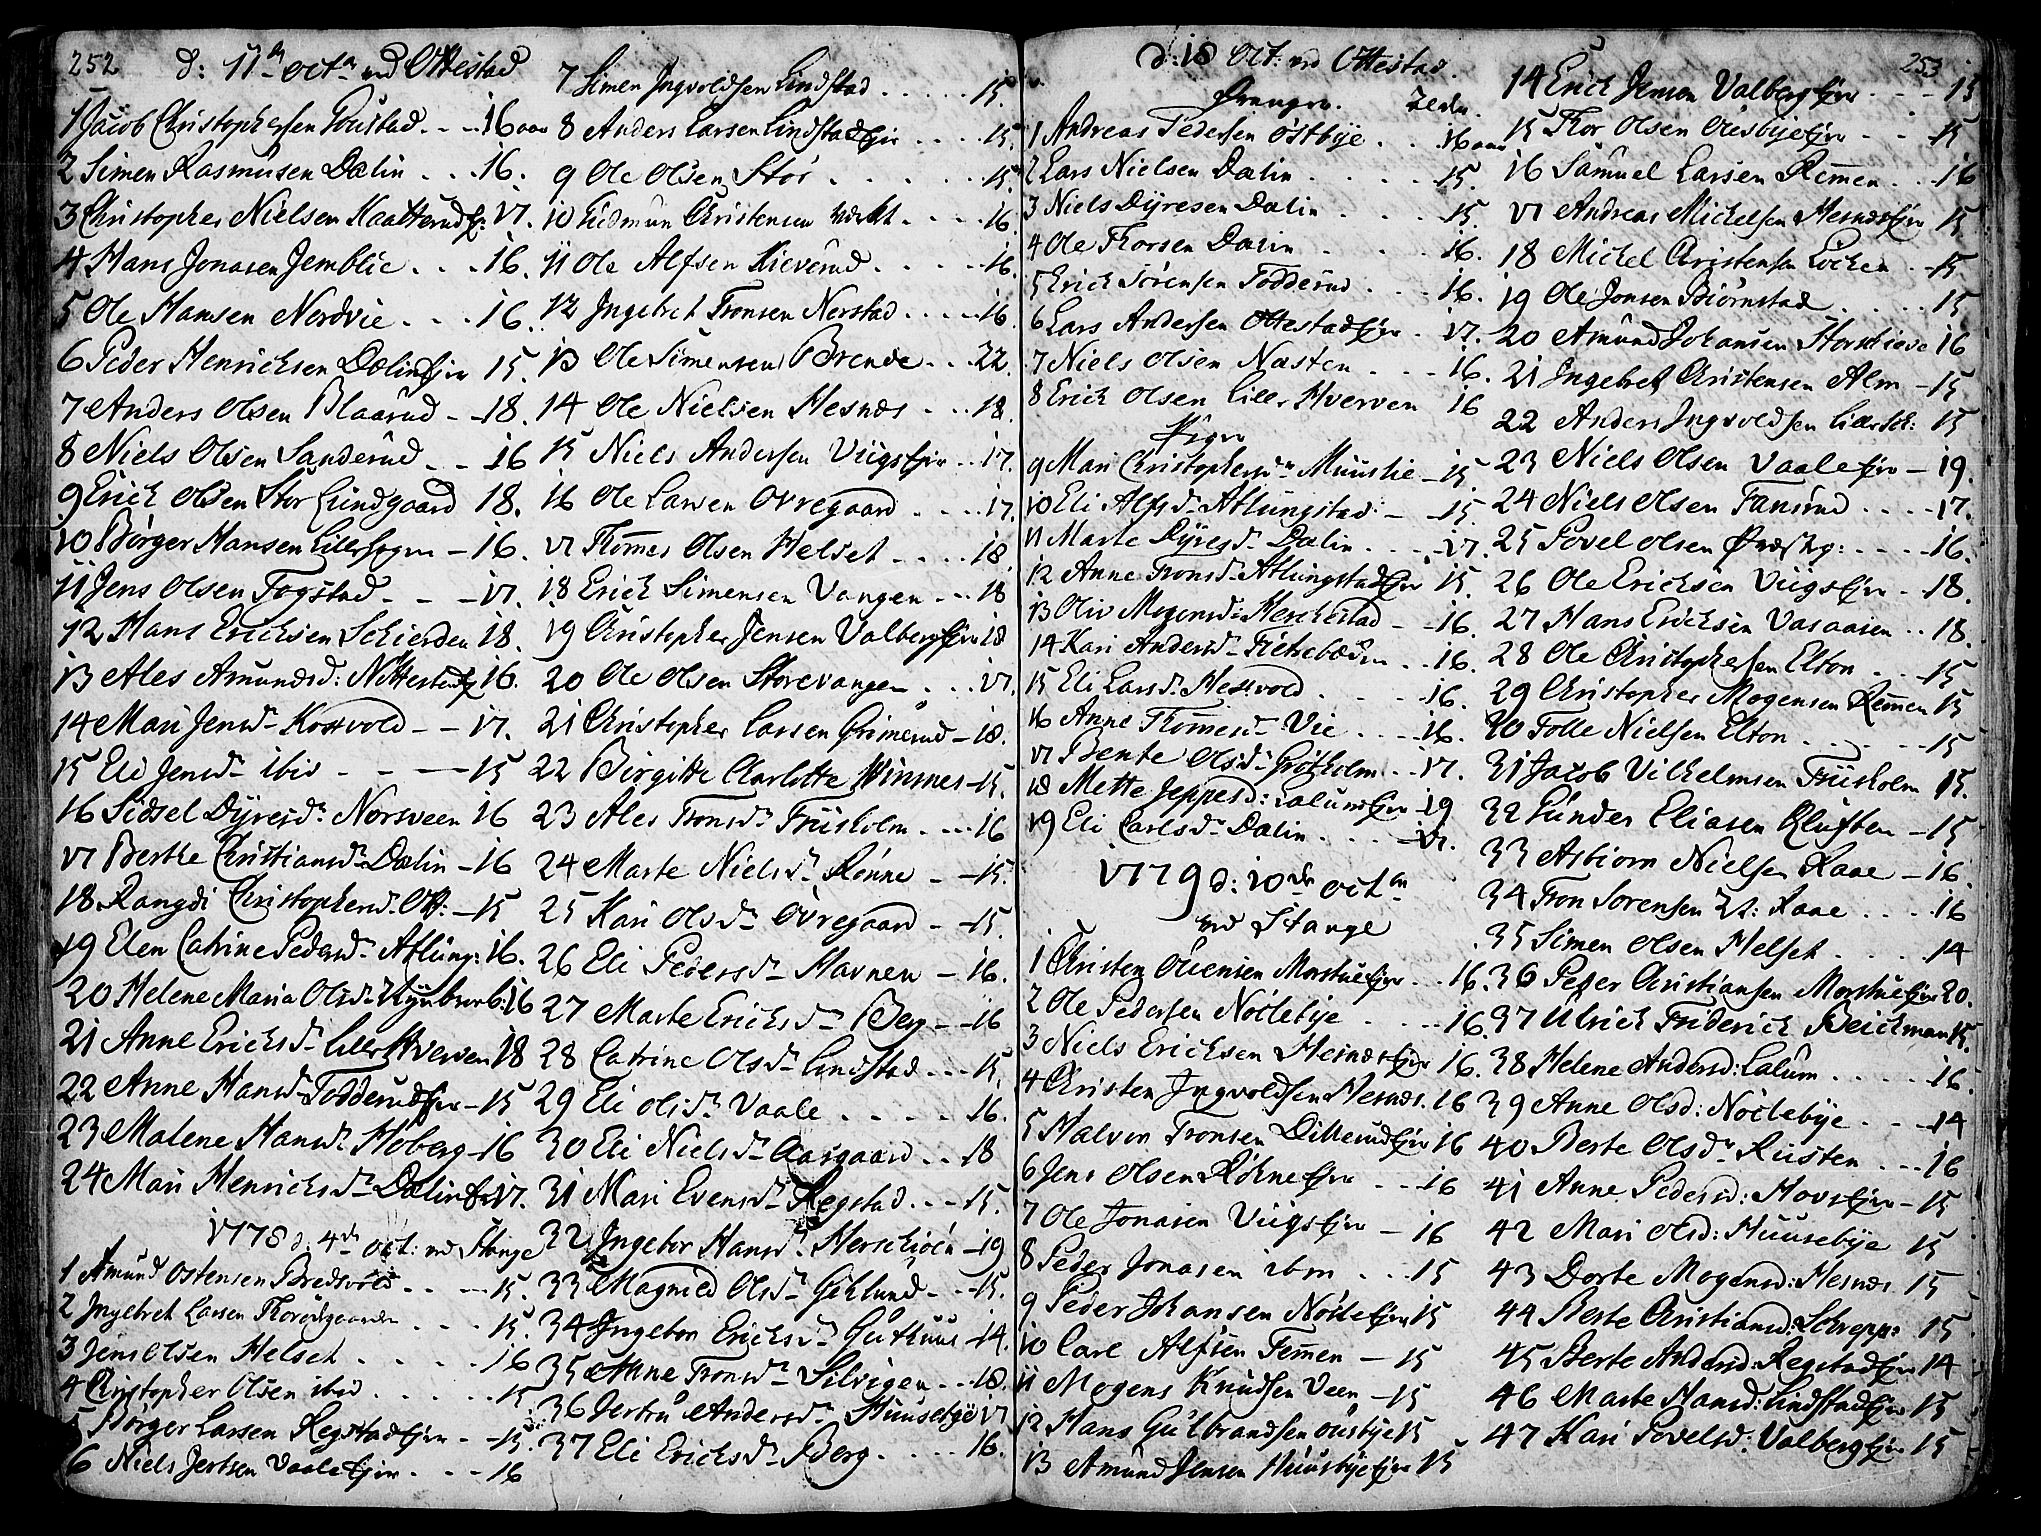 252
d: 11te oct. ved Ottestad
1 Jacob Christophersen - - 16 aar
2 Simen Rasmusen Dælin . . . 16.
3 Christopher Nielsen Kaatterud 17.
4 Hans Jonasen Jemblie . . . 16.
5 Ole Hansen Nordvie . . . 16.
6 Peder Henrichsen Dælin Ejer 15.
7 Anders Olsen Blaarud - - 18.
8 Niels Olsen Sanderud - - 16
9 Erich Olsen Stor Lundgaard 18.
10 Børger Hansen - 16.
11 Jens Olsen Fogstad - - - 17.
12 Hans Erichsen Schierden 18.
13 Ales Amundsd: 16.
14 Mari Jensd. Korsvold - - 17.
15 Eli Jensd. ibid - - - 15
16 Sidsel Dyresd. Norsveen 16
17 Berthe Christiansd. Dælin - 16
18 Rangdi Christophersd. Ott: - 15
19 Elen Catrine Pedersd. Atlung: 16.
20 Helene Maria Olsd. 16
21 Anne Erichsd. Lille Hverven 18
22 Anne Hansd. Fodderud - 15
23 Malene Hansd. Hoberg - 16
24 Mari Henrichsd. Dælin 17.
1778 d: 4de oct: ved Stange
1 Amund Ostensen Bredvold . . - - 15.
2 Ingebret Larsen . . . 15.
3 Jens Olsen Helset . . . . . 16
4 Christopher Olsen ibid . . . . . 15
5 Børger Larsen Regstad - - 15.
6 Niels Jertsen Vaale - - - 16
7 Simen Ingvoldsen Lindstad . . . . . 15.
8 Anders Larsen Lindstad . . . . 15.
9 Ole Olsen Stor . . . . . . 15.
10 Gudmun Christensen . . . . 16.
11 Ole Alfsen Kieverud . . . . . 16.
12 Ingebret Tronsen Nerstad . . . . . 16.
13 Ole Simensen Brende . . . 22.
14 Ole Nielsen Hesnæs . . . 18.
15 Niels Andersen Viigs . . 17.
16 Ole Larsen Ovregaard . . . . 17.
17 Thomes Olsen Helset . . . . 18.
18 Erich Simensen Vangen - - - 18
19 Christopher Jensen Valberg 18
20 Ole Olsen Storevangen . . . 17.
21 Christopher Larsen Grimerud - 18.
22 Birgitte Charlotte Winsnes - 15.
23 Ales Tronsd. Friisholm . - - - 16
24 Marte Nielsd. Rønne - - 15.
25 Kari Olsd. Ovregaard - - 15.
26 Eli Pedersd. Stavnen - 16.
27 Marte Erichsd. Berg - - 16
28 Catrine Olsd. Lindstad . . . 15.
29 Eli Olsd. Vaale . . . . - 16.
30 Eli Nielsd. Aasgaard . . - 18
31 Mari Evensd. Regstad . . . 15.
32 Ingebor Hansd. - 19
33 Magnild Olsd. Gihlund - - 15.
34 Ingebor Erichsd. Guthuus - 14.
35 Anne Tronsd. Silvigen . . - 18.
36 Jertru Andersd. Huusebye 17
37 Eli Erichsd. Berg . . . . . 16.
253
d: 18 Oct: ved Ottestad.
Drenge. Zedle.
1 Andreas Pedersen Østbye . . 16 aar
2 Lars Nielsen Dælin . . . . . 15.
3 Niels Dyresen Dælin . . . . 15.
4 Ole Thorsen Dælin . . . . 16.
5 Erich Sørensen Fodderud . . . 16.
6 Lars Andersen Ottestad . 17.
7 Niels Olsen Næsten . . . 16.
8 Erich Olsen Lille Hverven 16
Piger
9 Mari Christophersd. - 15.
10 Eli Alfsd. Atlungstad: - 15.
11 Marte Dyresd. Dælin . . . - 17.
12 Anne Tronsd. Atlungstad 15.
13 Oliv Mogensd: - - 16.
14 Kari Andersd. . . 16.
15 Eli Larsd. Hestvold . . . . - 16.
16 Anne Thomesd. Vie . . . - 16.
17 Bente Olsd. Grotholm . . - 17.
18 Mette Jeppesd: Lalum - 19
19 Eli Carlsd. Dælin . . . . 17.
1779 d: 10de octr
ved Stange
1 Christen Morstue . . 16.
2 Ole Pedersen Noclebye . . . . . 16.
3 Niels Erichsen Hesnæs 16.
4 Christen Ingvoldsen Hesnæs. 16
5 Halvor Tronsen Dillerud 16
6 Jens Olsen Røhne - - - 16
7 Ole Jonasen Viigs - 16
8 Peder Jonasen ibm . . . 15
9 Peder Johansen Nocle 15
10 Carl Alfsen Femen - 15
11 Mogens Knudsen Veen - 15
12 Hans Gulbrandsen Ousbye 15
13 Amund Jensen Huusbye 15
14 Erich Jensen Valberg - - - 15
15 Thor Olsen Ousbye - - 15
16 Samuel Larsen Remen . . 16
17 Andreas Michelsen Hesnæs 15
18 Michel Christensen Lochen . . 15
19 Ole Jonsen Biørnstad . . . . . 15
20 Amund Johansen 16
21 Ingebret Christensen Alm - 15
22 Anders Ingvoldsen 15
23 Niels Olsen Vaale - 19.
24 Niels Olsen Fansrud . . . . 17.
25 Povel Olsen . . . 16.
26 Ole Erichsen Viigs - 18.
27 Hans Erichsen Vasaasen . . 18.
28 Ole Christophersen Elton . . . 15
29 Christopher Mogensen Remen 15
30 Tolle Nielsen Elton . . . . . 15
31 Jacob Vilhelmsen Friisholm 15.
32 Gunder Eliasen Kluften - 15
33 Asbiørn Nielsen Raae - 16.
34 Tron Sørensen Raae . . . 16
35 Simen Olsen Helset . . . . 14
36 Peder Christiansen Morstue 20.
37 Ulrich Friderich Beichman 15.
38 Helene Andersd: Lalum . . . . . 16.
39 Anne Olsd: Noclebye . . . 14
40 Berte Olsd. Rusten . . . 16
41 Anne Pedersd: Hovs - 15
42 Mari Olsd: Huusebye 15
43 Dorte Mogensd: Hesnæs 15
44 Berte Christiansd: Schrepp: 15
45 Berte Andersd: Regstad 14
46 Marte Hansd: Lindstad 15
47 Kari Povelsd: Valberg 15